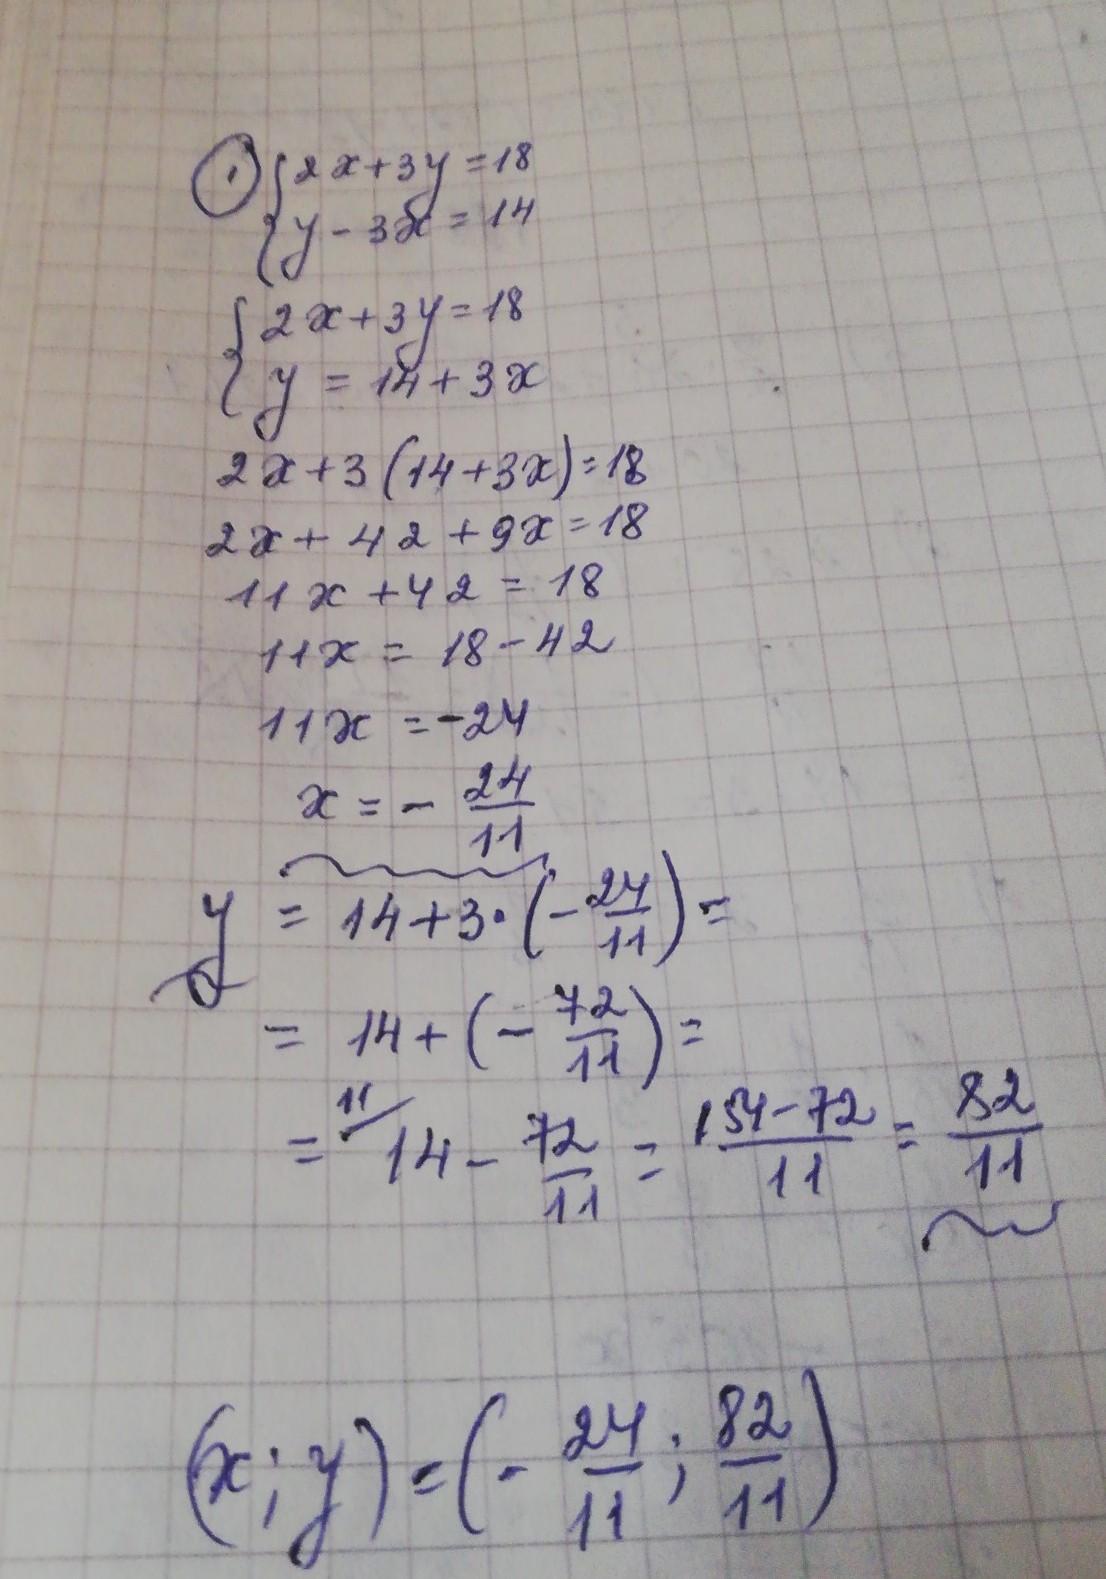 ① { 2x+3y=18
{ y-3x=14
{ 2x+3y=18
{ y=14+3x
2x+3(14+3x)=18
2x+42+9x=18
11x+42=18
11x=18-42
11x=-24
x=-24/11
y=14+3·(-24/11)=
=14+(-72/11)=
= 11/ 14-72/11=(154-72)/11=82/11
(x;y)=(-24/11;82/11)